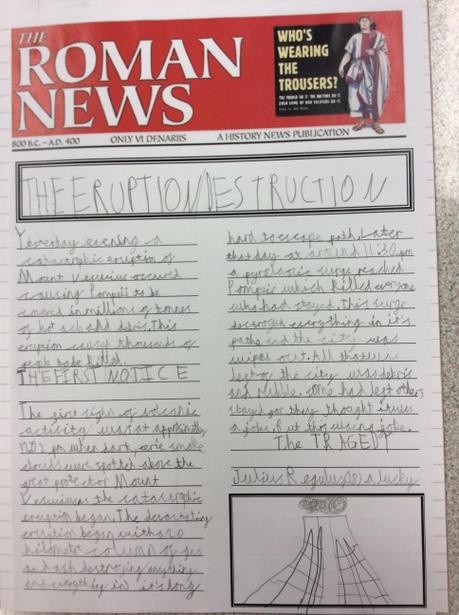 THE
ROMAN
NEWS
WHO'S
WEARING
THE
TROUSERS?
THE FRENCH DO IT. THE BRITONS DO IT.
EVEN SOME OF OUR SOLDIERS DO IT.
800 B.C. – A.D. 400 ONLY VI DENARIIS A HISTORY NEWS PUBLICATION
THE ERUPTION DESTRUCTION
Yesterday evening a
catastrophic eruption of
Mount Vesuvius occured
causing Pompeii to be
covered in millions of tonnes
of hot ash and debris. This
eruption caused thousands of
people to be killed.
THE FIRST NOTICE
The first sight of volcanic
activity was at
pm when dark, eerie smoke
clouds were spotted above the
great protector Mount
Vesuvius the catastrophic
eruption began. The devastating
eruption began with a 20
kilometre column of gas
and ash destroying anything
and everything in it's long
hard to escape path. Later
that day at around 11:30 pm
a pyroclastic surge reached
Pompeii which killed everyone
who had stayed. This surge
destroyed everything in it's
path and the city was
wiped out. All that was
left of the city was debris
and rubble. Some had left others
stayed for they thought it was
a joke. But this was no joke.
The TRAGEDY
Julius Regulus(18) a lucky